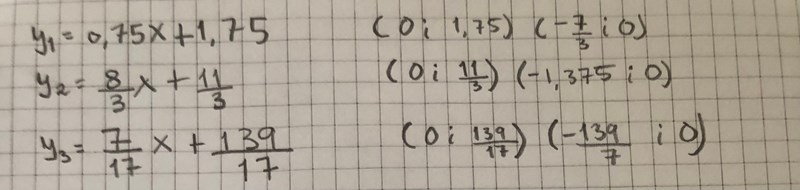 y₁ = 0,75x + 1,75 (0; 1,75) (-7/3; 0)
y₂ = 8/3 x + 11/3 (0; 11/3) (-1,375; 0)
y₃ = 7/17 x + 139/17 (0; 139/17) (-139/7; 0)